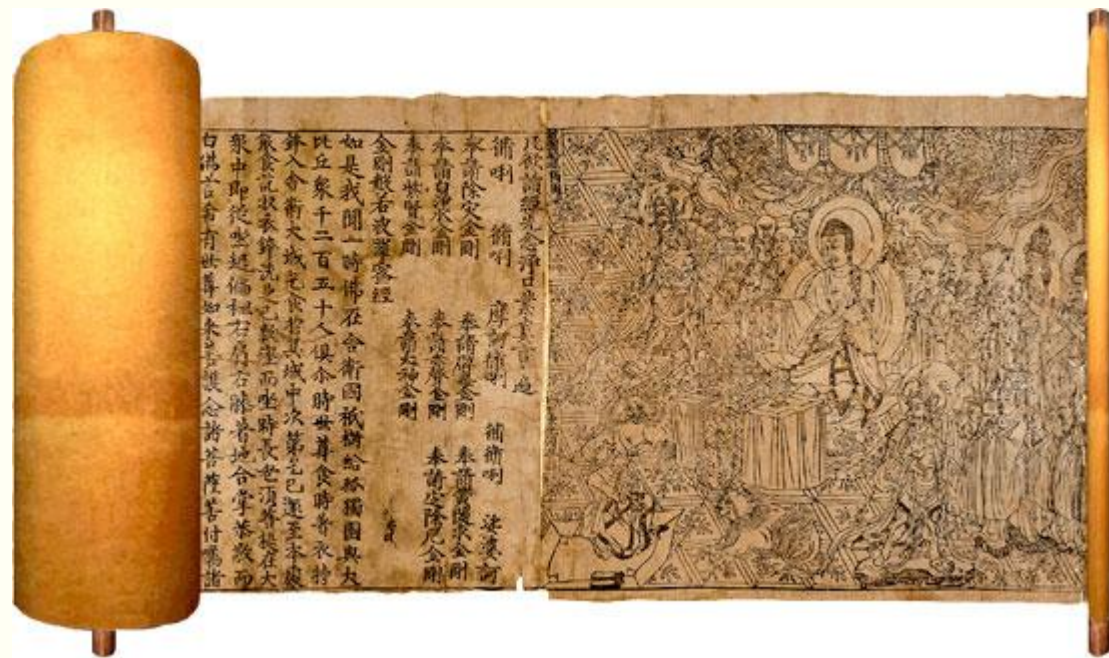 凡欲讀經先念淨口業真言一遍
脩唎 脩唎 摩訶脩唎 脩脩唎 娑婆訶
奉請除災金剛 奉請辟毒金剛 奉請黃隨求金剛
奉請白淨水金剛 奉請赤聲金剛 奉請定除厄金剛
奉請紫賢金剛 奉請大神金剛
金剛般若波羅蜜經
如是我聞一時佛在舍衛國祇樹給孤獨園與大
比丘衆千二百五十人俱尒時世尊食時著衣持
鉢入舍衛大城乞食於其城中次第乞已還至本處
飯食訖收衣鉢洗足已敷座而坐時長老須菩提在大
衆中即從坐起偏袒右肩右膝著地合掌恭敬而
白佛言希有世尊如來善護念諸菩薩善付囑諸